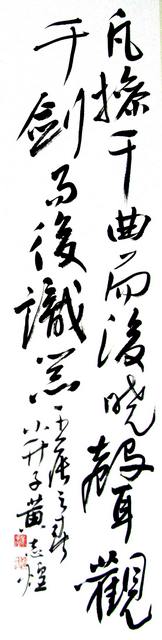 凡操千曲而後曉聲觀
千劍而後識器
黃志煌